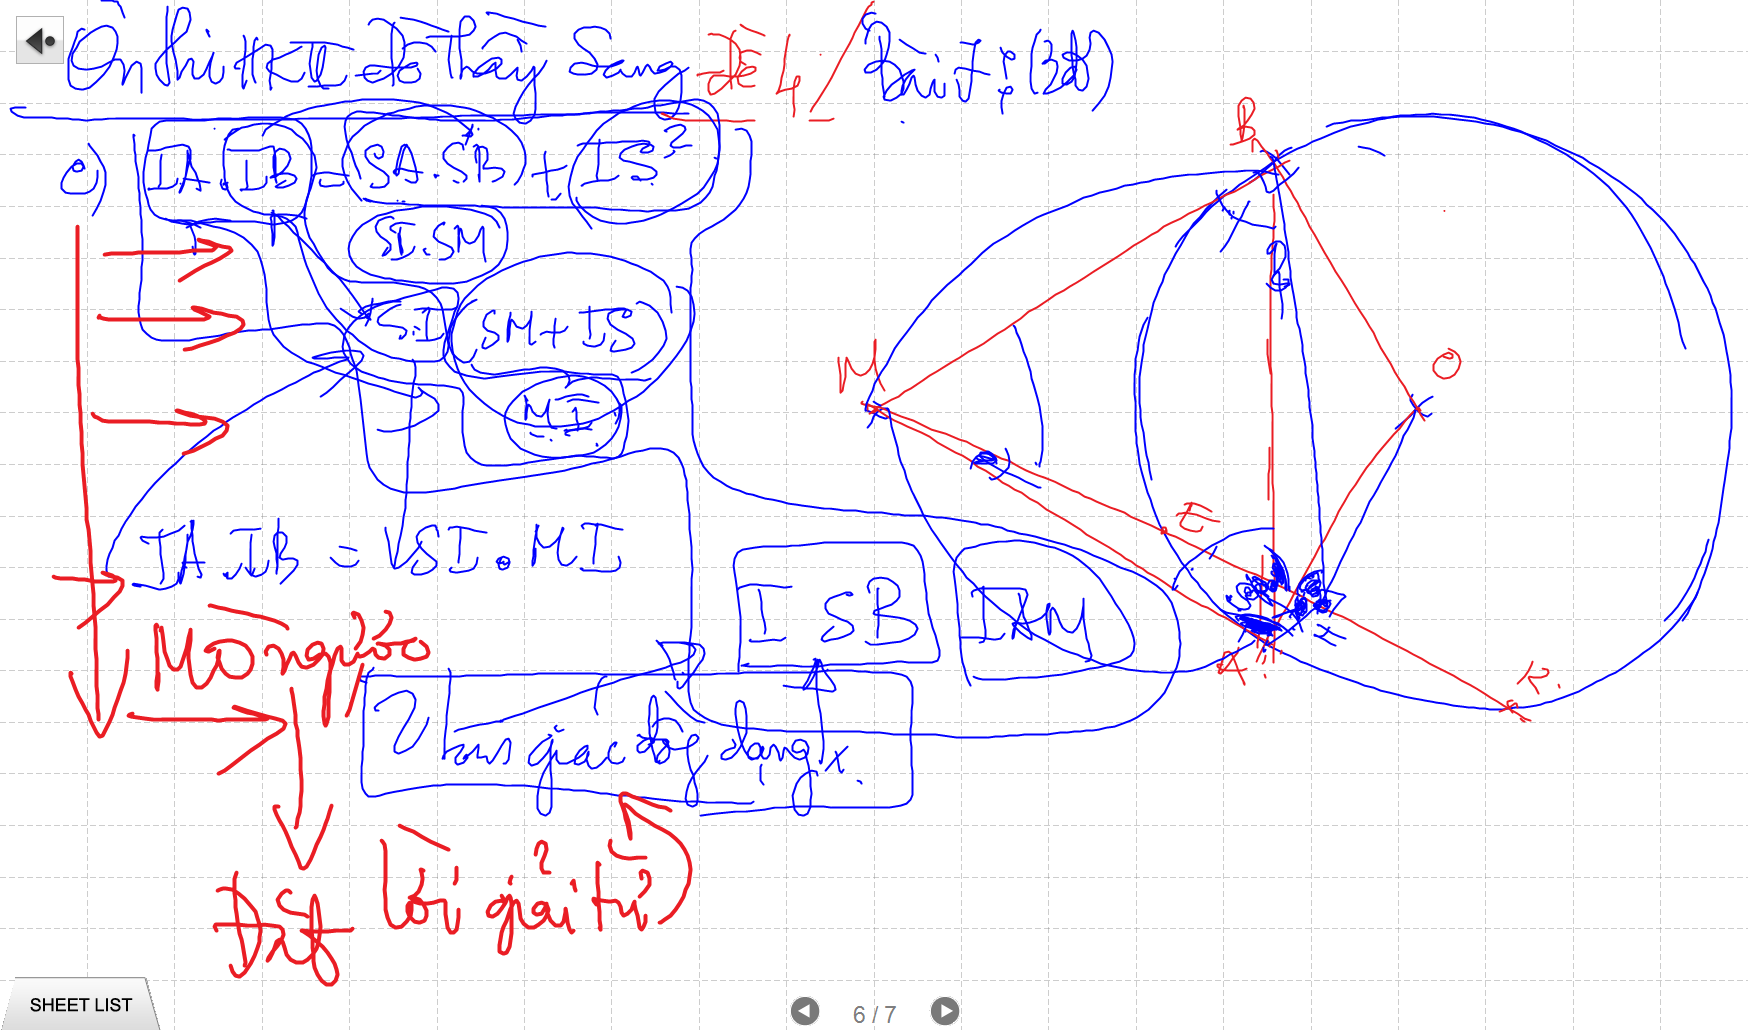 Ôn thi HKII đề Thầy Sang đề 4/ Bài I: (3đ)
c) IA.IB = SA.SB + IS²
SI.SM
SI (SM + IS)
MI
IA.IB = SI.MI
ISB
IAM
Mò ngược
2 tam giác đồng dạng
Đất
Lời giải từ
B
M
O
E
S
I
A
K
SHEET LIST
6 / 7